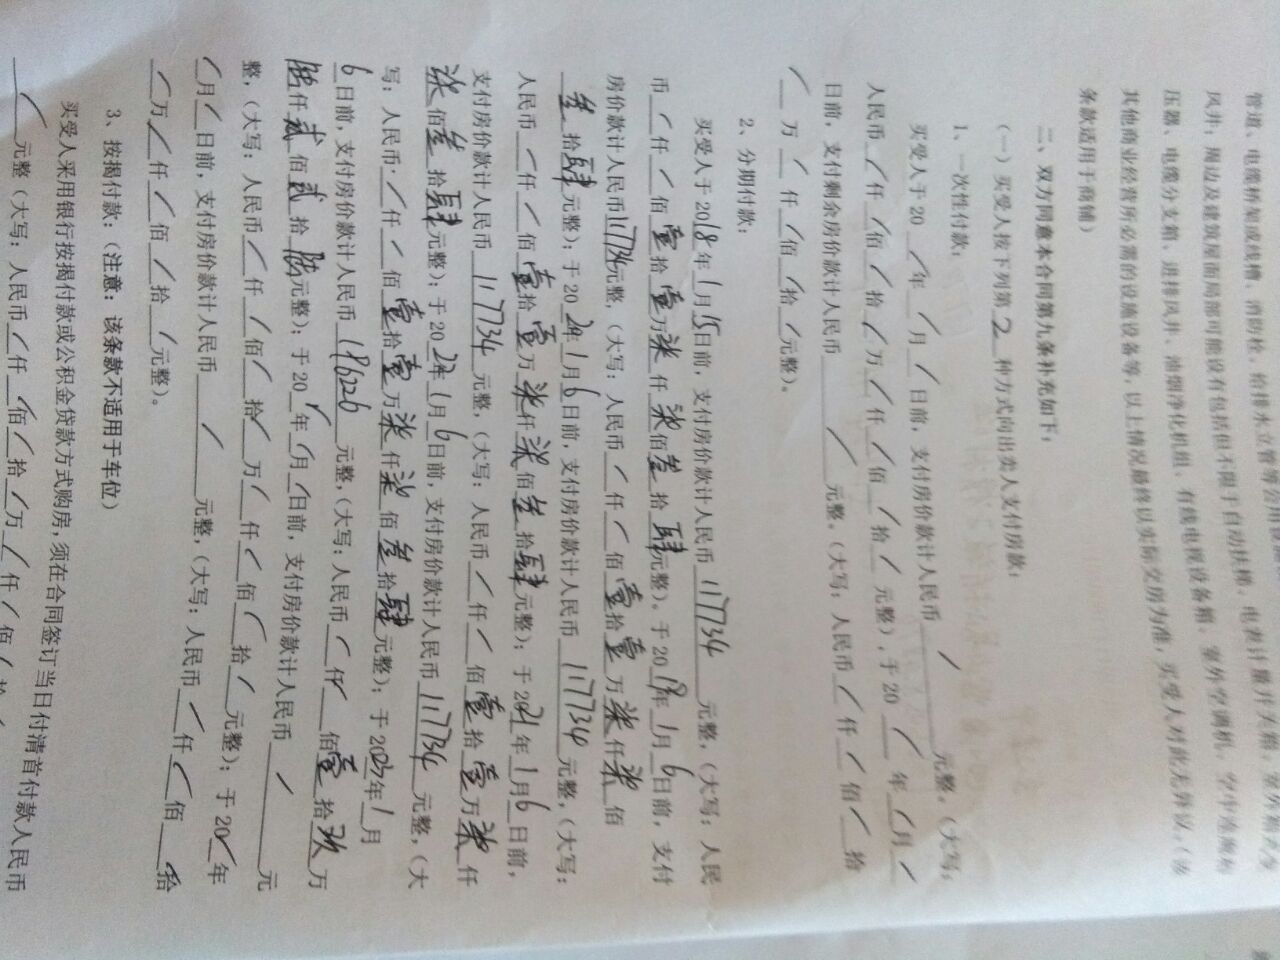 管道、电缆桥架或线槽、消防栓、给排水立管等公用
风井；周边及建筑屋面局部可能设有包括但不限于自动扶梯、电表计量开关箱、室外箱式变
压器、电缆分支箱、进排风井、油烟净化机组、有线电视设备箱、室外空调机、空中连廊和
其他商业经营所必需的设施设备等，以上情况最终以实际交房为准，买受人对此无异议。（该
条款适用于商铺）
二、双方同意本合同第九条补充如下：
（一）买受人按下列第2种方式向出卖人支付房款：
1、一次性付款：
买受人于20/年/月/日前，支付房价款计人民币/元整。（大写：
人民币/仟/佰/拾/万/仟/佰/拾/元整），于20/年/月/
日前，支付剩余房价款计人民币/元整。（大写：人民币/仟/佰/拾
/万/仟/佰/拾/元整）。
2、分期付款：
买受人于2018年1月15日前，支付房价款计人民币117734元整，（大写：人民
币/仟/佰壹拾壹万柒仟柒佰叁拾肆元整）。于2019年1月6日前，支付
房价款计人民币117734元整，（大写：人民币/仟/佰壹拾壹万柒仟柒佰
叁拾肆元整）；于2020年1月6日前，支付房价款计人民币117734元整，（大写：
人民币/仟/佰壹拾壹万柒仟柒佰叁拾肆元整）；于2021年1月6日前，
支付房价款计人民币117734元整，（大写：人民币/仟/佰壹拾壹万柒仟
柒佰叁拾肆元整）；于2022年1月6日前，支付房价款计人民币117734元整，（大
写：人民币/仟/佰壹拾壹万柒仟柒佰叁拾肆元整）；于2023年1月
6日前，支付房价款计人民币196226元整，（大写：人民币/仟/佰壹拾玖万
陆仟贰佰贰拾陆元整）；于20/年/月/日前，支付房价款计人民币/元
整，（大写：人民币/仟/佰/拾/万/仟/佰/拾/元整）；于20/年
/月/日前，支付房价款计人民币/元整，（大写：人民币/仟/佰/拾
/万/仟/佰/拾/元整）。
3、按揭付款：（注意：该条款不适用于车位）
买受人采用银行按揭付款或公积金贷款方式购房，须在合同签订当日付清首付款人民币
/元整（大写：人民币/仟/佰/拾/万/仟/佰/拾